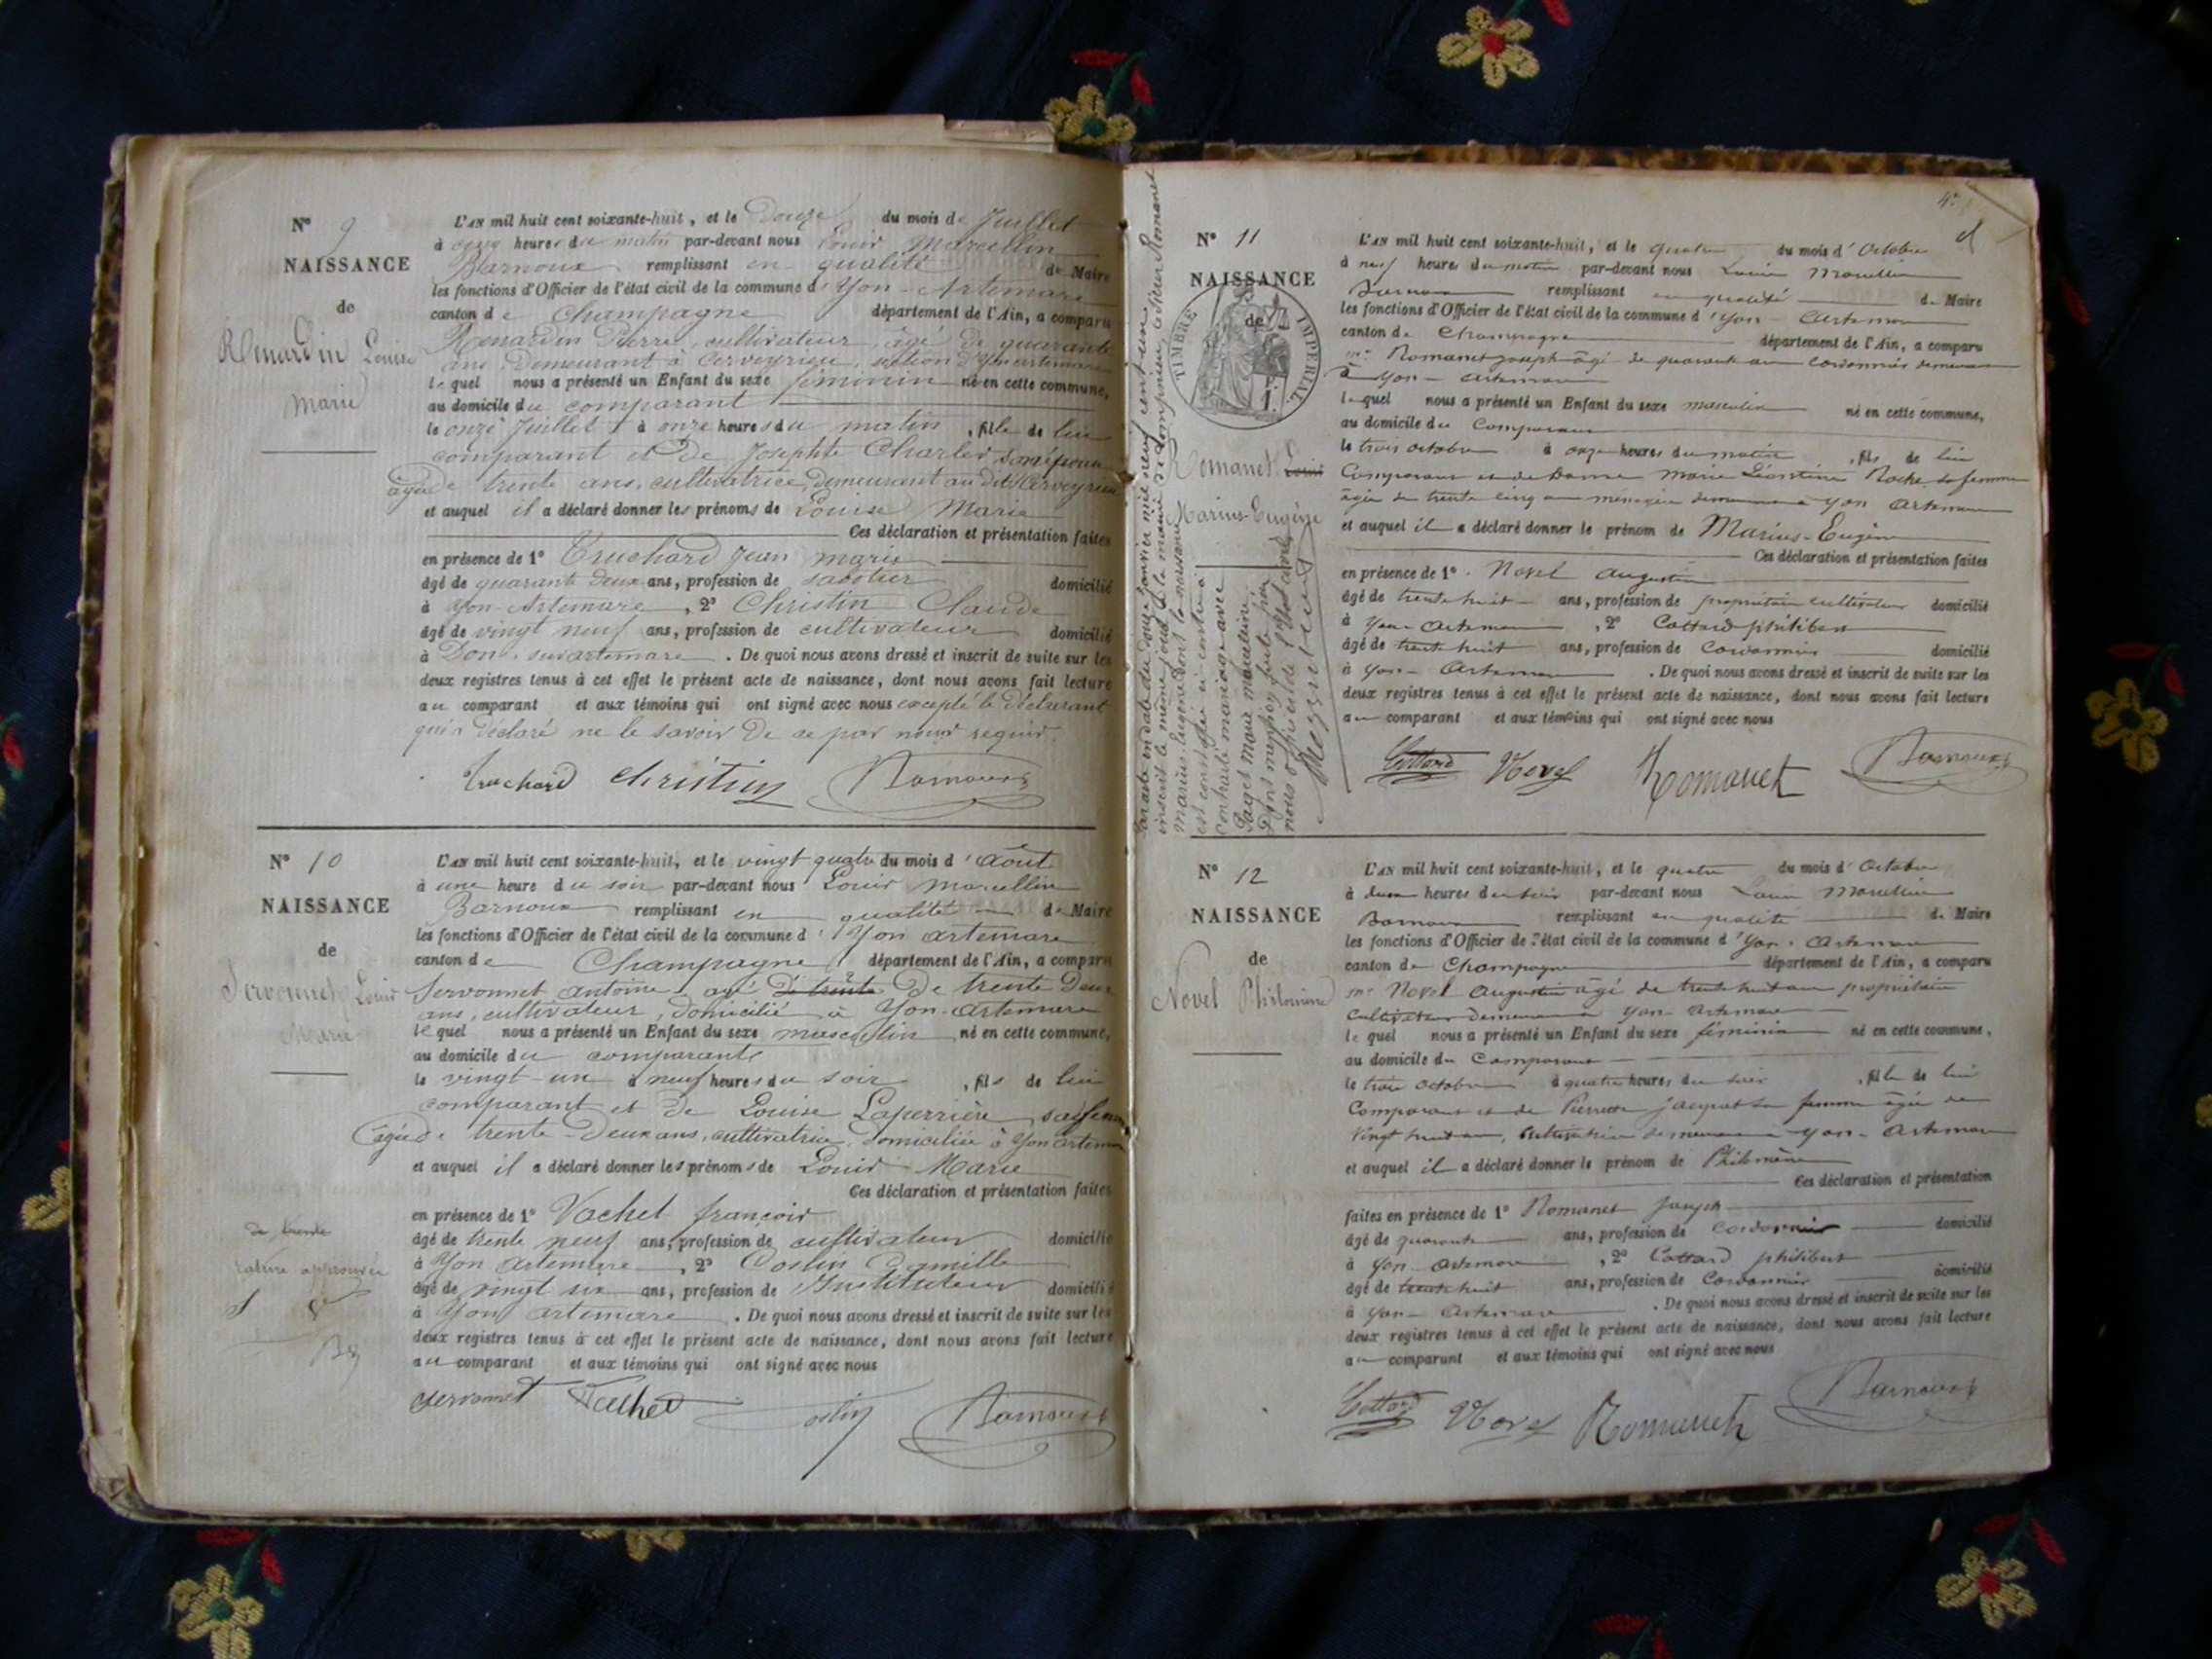 N° 9
NAISSANCE
de
Renardin Louise
Marie
L'AN mil huit cent soixante-huit, et le Douze du mois de Juillet
à cinq heures du matin par-devant nous Louis Marcellin
Barnoux remplissant en qualité de Maire
les fonctions d'Officier de l'état civil de la commune d'Yon-Artemare
canton de Champagne département de l'Ain, a comparu
Renardin Pierre, cultivateur, âgé de quarante
ans, Demeurant à Cerveyrieu, section d'Yon artemare
lequel nous a présenté un Enfant du sexe féminin né en cette commune,
au domicile du comparant
le onze Juillet à onze heures du matin, fille de lui
comparant et de Josephte Charles son épouse
agée de trente ans, cultivatrice, demeurant au dit Cerveyrieu
et auquel il a déclaré donner les prénoms de Louise Marie
Ces déclaration et présentation faites
en présence de 1° Truchard Jean marie
âgé de quarante deux ans, profession de sabotier domicilié
à Yon-Artemare, 2° Christin Claude
âgé de vingt neuf ans, profession de cultivateur domicilié
à Don sur artemare. De quoi nous avons dressé et inscrit de suite sur les
deux registres tenus à cet effet le présent acte de naissance, dont nous avons fait lecture
au comparant et aux témoins qui ont signé avec nous excepté le Déclarant
qui a Déclaré ne le savoir De ce par nous requis.
Truchard Christin Barnoux
N° 10
NAISSANCE
de
Servonnet Louis
Marie
L'AN mil huit cent soixante-huit, et le vingt quatre du mois d'Août
à une heure du soir par-devant nous Louis Marcellin
Barnoux remplissant en qualité de Maire
les fonctions d'Officier de l'état civil de la commune d'Yon artemare
canton de Champagne département de l'Ain, a comparu
Servonnet Antoine agé De trente De trente Deux
ans, cultivateur, domicilié à Yon-Artemare
lequel nous a présenté un Enfant du sexe masculin né en cette commune,
au domicile du comparant
le vingt-un à neuf heures du soir, fils de lui
comparant et de Louise Laperrière sa femme
agée de trente-Deux ans, cultivatrice, domiciliée à Yon artemare
et auquel il a déclaré donner les prénoms de Louis Marie
Ces déclaration et présentation faites
en présence de 1° Vachet françois
âgé de trente neuf ans, profession de cultivateur domicilié
à Yon Artemare, 2° Costin Camille
âgé de vingt six ans, profession de Instituteur domicilié
à Yon artemare. De quoi nous avons dressé et inscrit de suite sur les
deux registres tenus à cet effet le présent acte de naissance, dont nous avons fait lecture
au comparant et aux témoins qui ont signé avec nous
de trente
rature approuvée
Servonnet Vachet Barnoux
N° 11
NAISSANCE
de
TIMBRE IMPERIAL
Romanet Louis
Marius-Eugène
L'AN mil huit cent soixante-huit, et le quatre du mois d'Octobre
à neuf heures du matin par-devant nous Louis Marcellin
Barnoux remplissant en qualité de Maire
les fonctions d'Officier de l'état civil de la commune d'Yon-Artemare
canton de Champagne département de l'Ain, a comparu
mr Romanet joseph âgé de quarante ans cordonnier demeurant
à Yon-Artemare
lequel nous a présenté un Enfant du sexe masculin né en cette commune,
au domicile du Comparant
le trois octobre à onze heures du matin, fils de lui
Comparant et de Dame Marie Léontine Roche sa femme
âgée de trente cinq ans ménagère demeurant à Yon Artemare
et auquel il a déclaré donner le prénom de Marius-Eugène
Ces déclaration et présentation faites
en présence de 1° Novel Augustin
âgé de trente huit ans, profession de propriétaire cultivateur domicilié
à Yon-Artemare, 2° Cottard philibert
âgé de trente huit ans, profession de Cordonnier domicilié
à Yon-Artemare. De quoi nous avons dressé et inscrit de suite sur les
deux registres tenus à cet effet le présent acte de naissance, dont nous avons fait lecture
au comparant et aux témoins qui ont signé avec nous
Cottard Novel Romanet Barnoux
N° 12
NAISSANCE
de
Novel Philomène
L'AN mil huit cent soixante-huit, et le quatre du mois d'Octobre
à deux heures du soir par-devant nous Louis Marcellin
Barnoux remplissant en qualité de Maire
les fonctions d'Officier de l'état civil de la commune d'Yon-Artemare
canton de Champagne département de l'Ain, a comparu
mr Novel Augustin âgé de trente huit ans propriétaire
Cultivateur demeurant à Yon-Artemare
lequel nous a présenté un Enfant du sexe féminin né en cette commune,
au domicile du Comparant
le trois octobre à quatre heures du soir, fille de lui
Comparant et de Pierrette jacquet sa femme âgée de
vingt huit ans, Cultivatrice demeurant à Yon-Artemare
et auquel il a déclaré donner le prénom de Philomène
Ces déclaration et présentation
faites en présence de 1° Romanet Joseph
âgé de quarante ans, profession de Cordonnier domicilié
à Yon-Artemare, 2° Cottard philibert
âgé de trente huit ans, profession de Cordonnier domicilié
à Yon-Artemare. De quoi nous avons dressé et inscrit de suite sur les
deux registres tenus à cet effet le présent acte de naissance, dont nous avons fait lecture
au comparant et aux témoins qui ont signé avec nous
Cottard Novel Romanet Barnoux